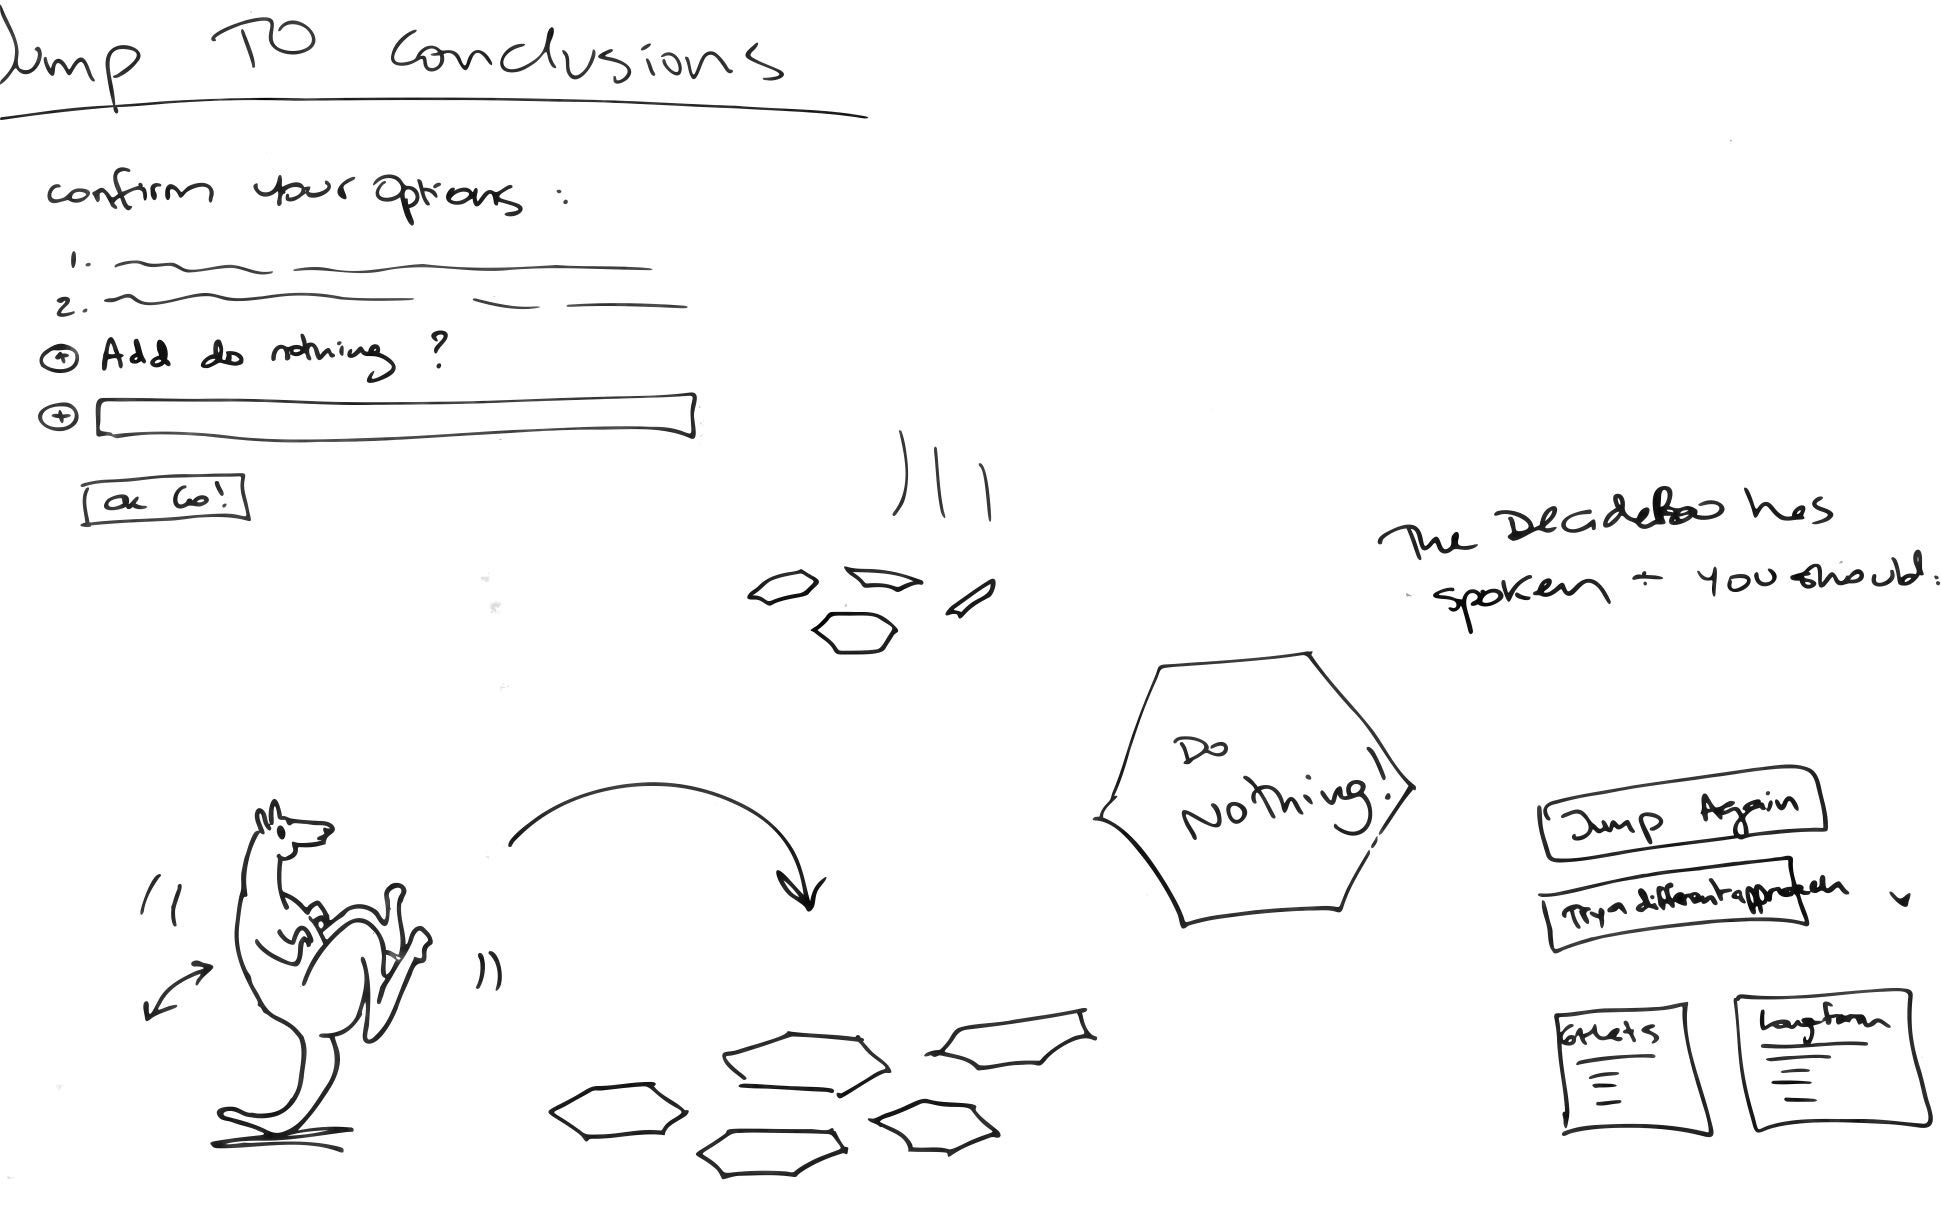 Jump TO conclusions
confirm your options :
1.
2.
+ Add do nothing ?
+
OK Go!
The DecideRoo has
spoken - you should:
Do
Nothing!
Jump Again
Try a different approach
Long term